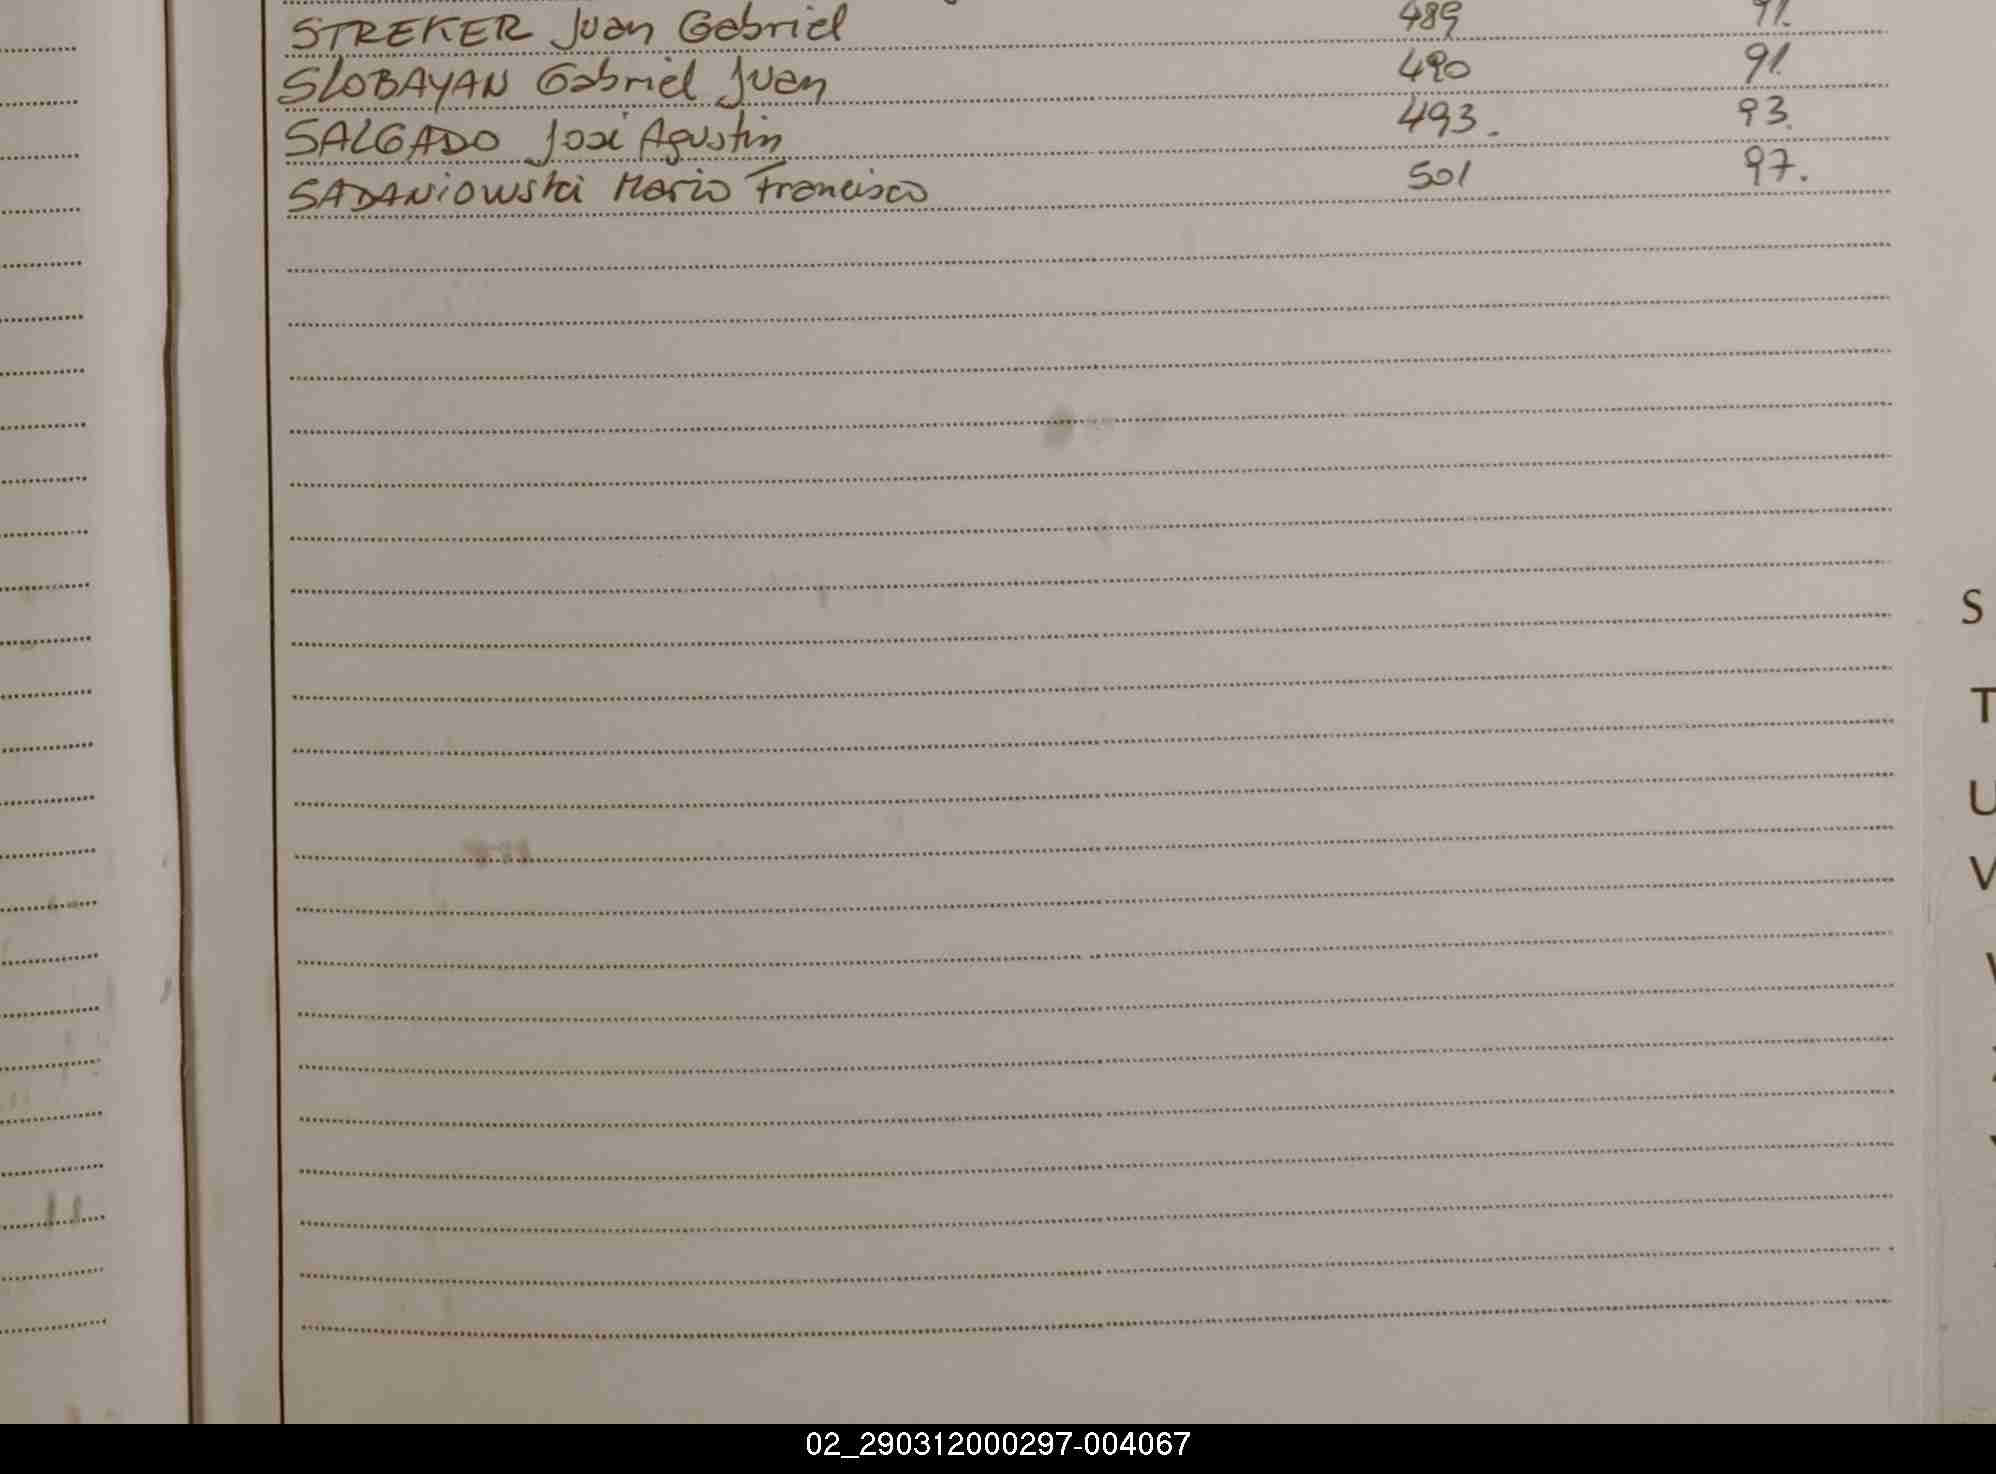 STREKER Juan Gabriel 489 91.
SLOBAYAN Gabriel Juan 490 91.
SALGADO José Agustin 493. 93.
SADANiOWSKi Mario Francisco 501 97.
S
T
U
V
02_290312000297-004067